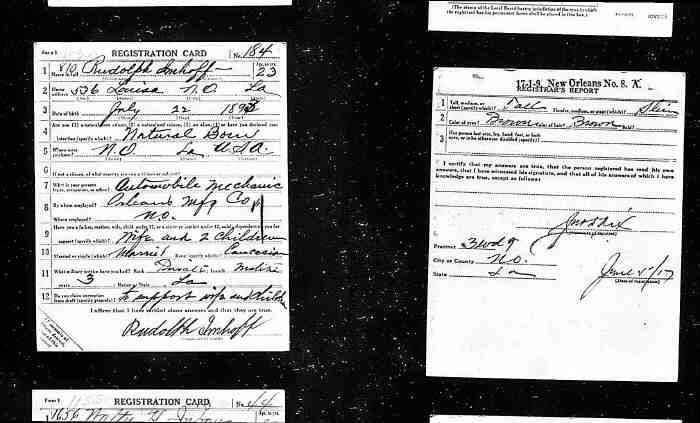 (The stamp of the Local Board having jurisdiction of the area in which
the registrant has his permanent home shall be placed in this box.)
Form 1 REGISTRATION CARD No. 184
1 Name in full 810 Rudolph Imhoff Age, in yrs. 23
2 Home address 536 Louisa N.O. La
3 Date of birth July 22 1893
4 Are you (1) a natural-born citizen, (2) a naturalized citizen, (3) an alien, (4) or have you declared your
intention (specify which)? Natural Born
5 Where were you born? N.O. La USA.
6 If not a citizen, of what country are you a citizen or subject?
7 What is your present trade, occupation, or office? Automobile Mechanic
8 By whom employed? Orleans Mfg Co
Where employed? N.O.
9 Have you a father, mother, wife, child under 12, or a sister or brother under 12, solely dependent on you for
support (specify which)? Wife and 2 children
10 Married or single (which)? Married Race (specify which)? Caucasian
11 What military service have you had? Rank Private branch
years 3 Nation or State La
12 Do you claim exemption from draft (specify grounds)? to support wife and children
I affirm that I have verified above answers and that they are true.
Rudolph Imhoff
Form 1 REGISTRATION CARD No. 44
1656
17-1-9. New Orleans No. 8. K.
REGISTRAR'S REPORT
1 Tall, medium, or short (specify which)? Tall Slender, medium, or stout (which)? Slim
2 Color of eyes? Brown Color of hair? Brown Bald?
3 Has person lost arm, leg, hand, foot, or both
eyes, or is he otherwise disabled (specify)?
I certify that my answers are true, that the person registered has read his own
answers, that I have witnessed his signature, and that all of his answers of which I have
knowledge are true, except as follows:
Precinct 3 Wd 9
City or County N.O.
State La
June 5/17
(Date of registration)